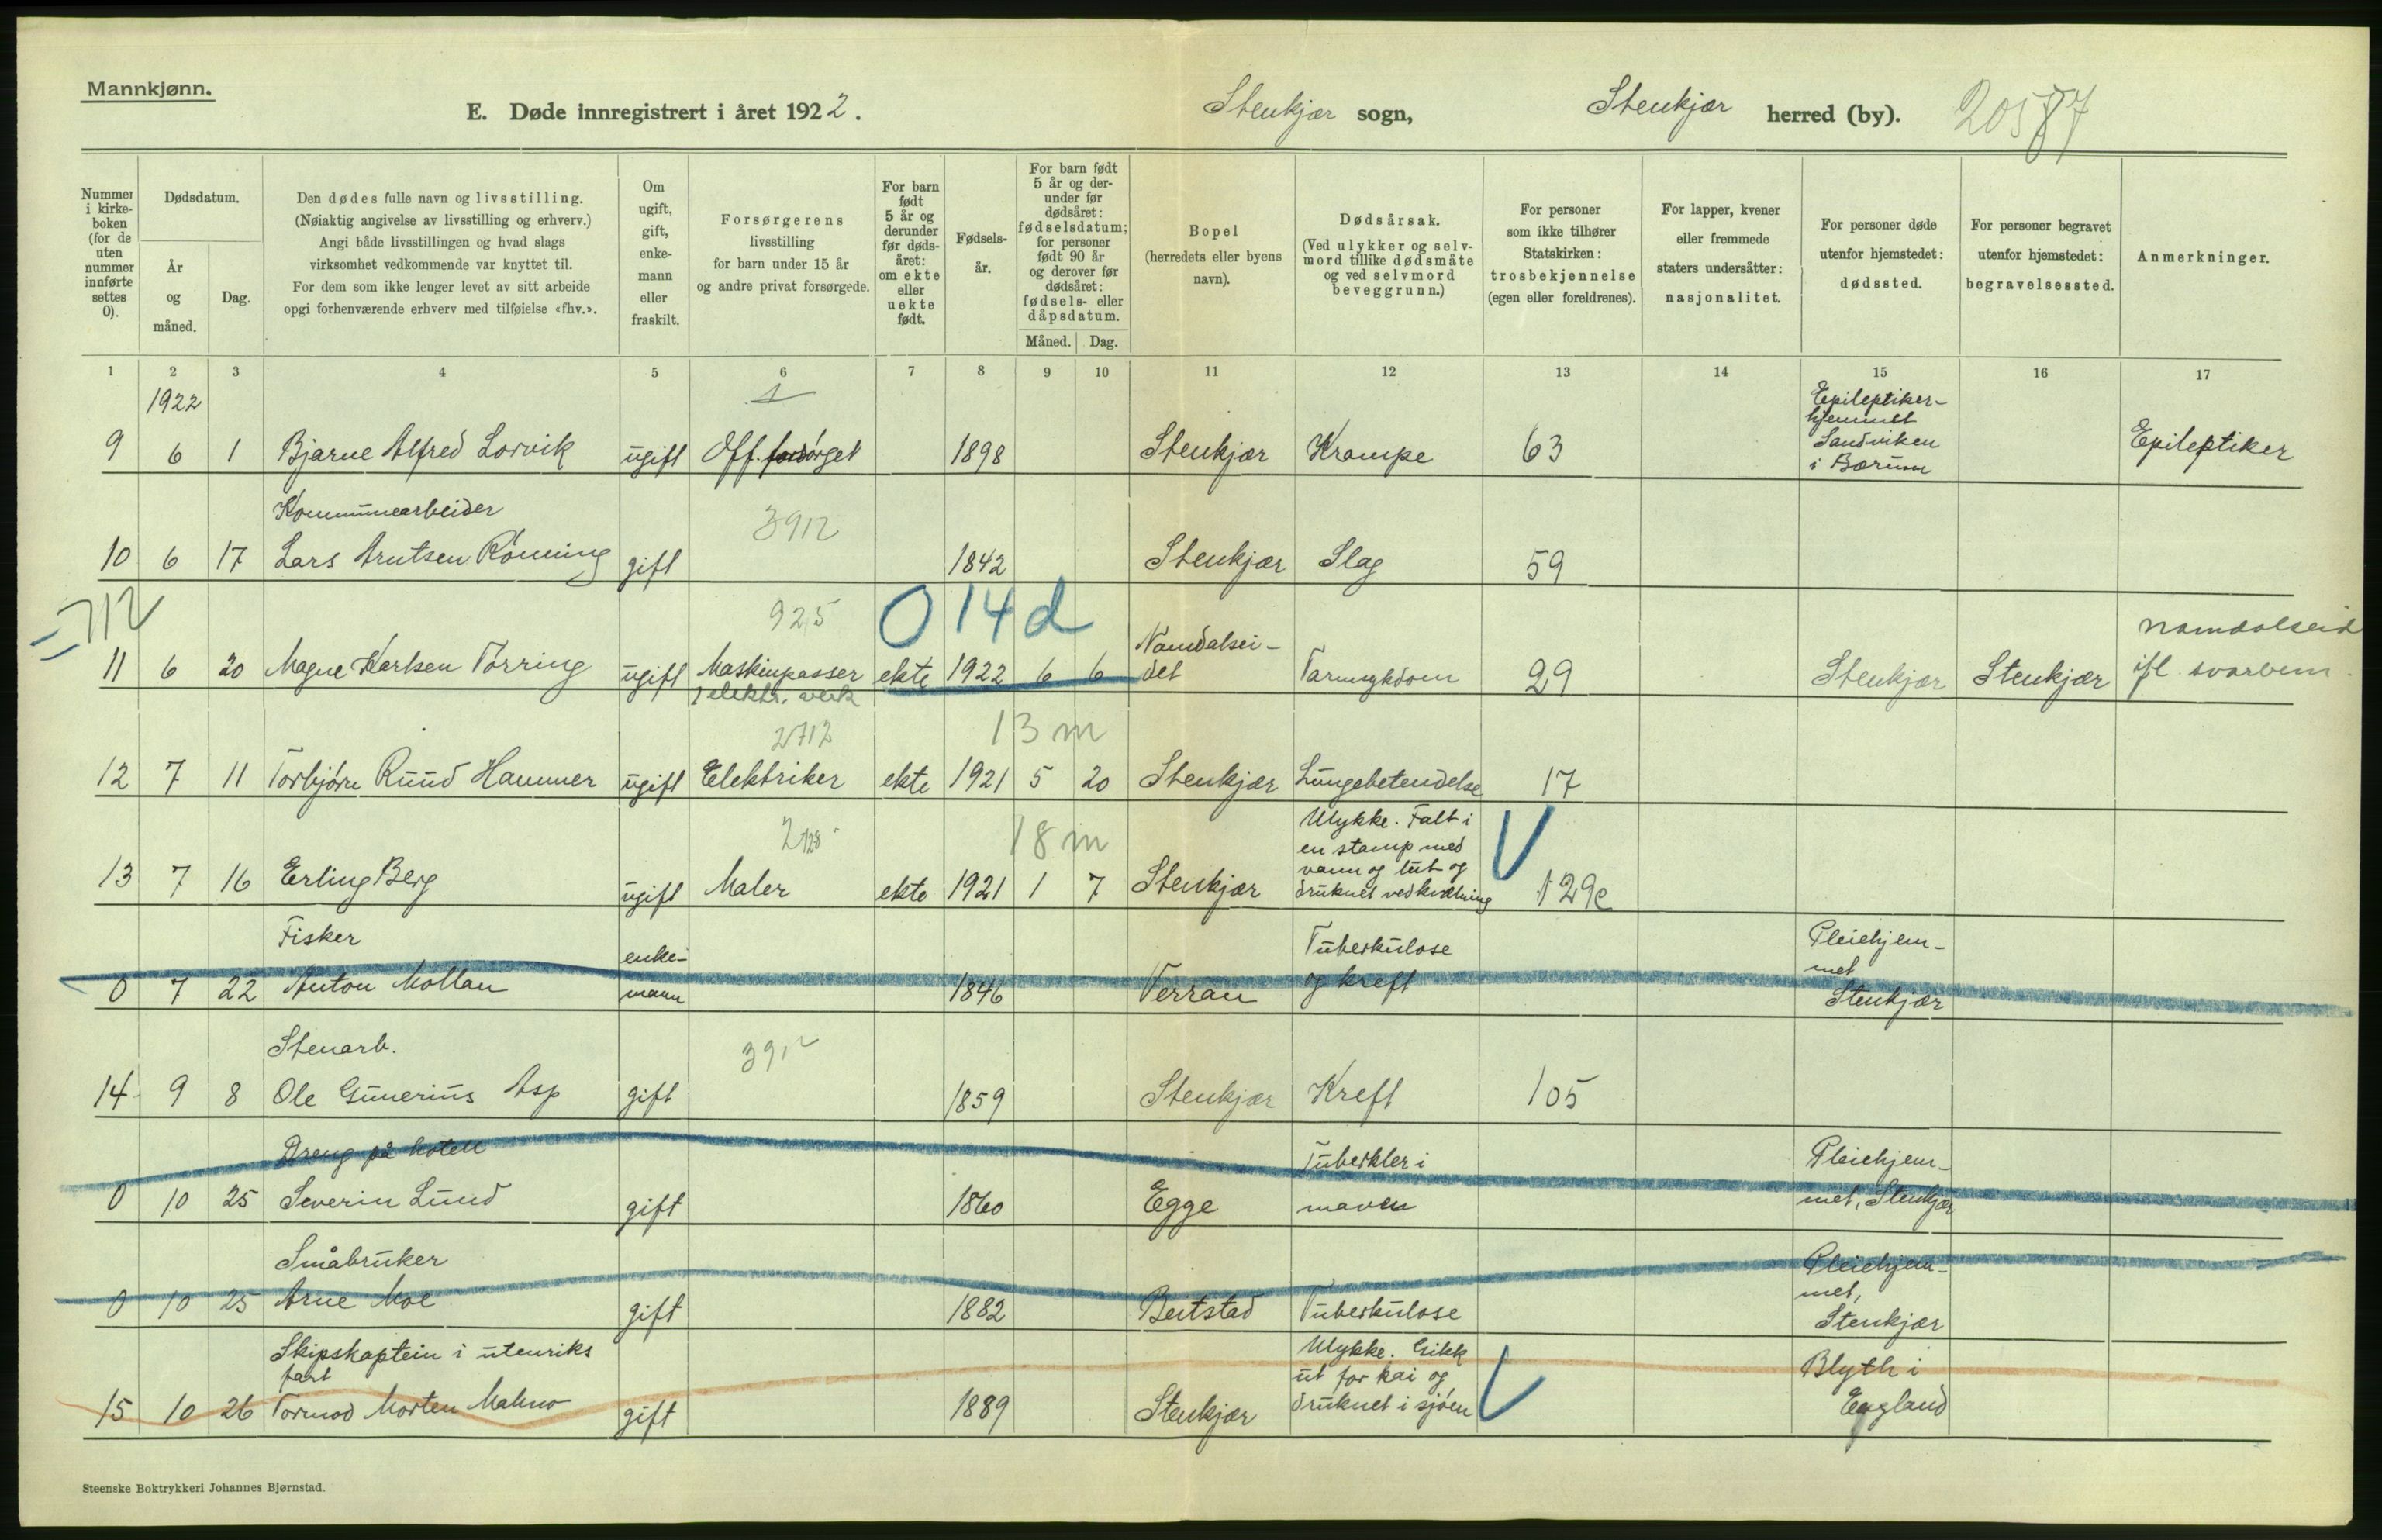 Mannkjønn.
E. Døde innregistrert i året 1922.
Stenkjær sogn,
Stenkjær herred (by).
Nummer i kirke-boken (for de uten nummer innførte settes 0).
Dødsdatum.
År og måned.
Dag.
Den dødes fulle navn og livsstilling.
(Nøiaktig angivelse av livsstilling og erhverv.)
Angi både livsstillingen og hvad slags
virksomhet vedkommende var knyttet til.
For dem som ikke lenger levet av sitt arbeide
opgi forhenværende erhverv med tilføielse «fhv.».
Om ugift, gift, enke-mann eller fraskilt.
Forsørgerens
livsstilling
for barn under 15 år
og andre privat forsørgede.
For barn født 5 år og derunder før døds-året: om ekte eller uekte født.
Fødsels-år.
For barn født 5 år og der-under før dødsåret: fødselsdatum; for personer født 90 år og derover før dødsåret: fødsels- eller dåpsdatum.
Måned. Dag.
Bopel
(herredets eller byens
navn).
Dødsårsak.
(Ved ulykker og selv-
mord tillike dødsmåte
og ved selvmord
beveggrunn.)
For personer
som ikke tilhører
Statskirken:
trosbekjennelse
(egen eller foreldrenes).
For lapper, kvener
eller fremmede
staters undersåtter:
nasjonalitet.
For personer døde
utenfor hjemstedet:
dødssted.
For personer begravet
utenfor hjemstedet:
begravelsessted.
Anmerkninger.
1 2 3 4 5 6 7 8 9 10 11 12 13 14 15 16 17
1922
9 6 1 Bjarne Alfred Lorvik ugift Off. forsørget 1898 Stenkjær Krampe 63 Epileptiker-
hjemmet
Sandviken
i Bærum
Epileptiker
Kommunearbeider
3912
10 6 17 Lars Arntsen Rønning gift 1842 Stenkjær Slag 59
712
925
0 14 d
11 6 20 Magne Karlsen Tørring ugift Maskinpasser
i elektr. verk
ekte 1922 6 6 Namdalsei-
det
Tarmsykdom 29 Stenkjær Stenkjær
Namdalseid
ifl. svarbem.
2712
13 m
12 7 11 Torbjørn Ruud Hammer ugift Elektriker ekte 1921 5 20 Stenkjær Lungebetendelse 17
2728
18 m
13 7 16 Erling Berg ugift Maler ekte 1921 1 7 Stenkjær
Ulykke. Falt i
en stamp med
vann og lut og
druknet ved kvelning
129c
Fisker
0 7 22 Anton Mollan enke-
mann
1846 Verran Tuberkulose
og kreft
Pleiehjem-
met
Stenkjær
Stenarb.
3912
14 9 8 Ole Gunerius Asp gift 1859 Stenkjær Kreft 105
Dreng på hotell
0 10 25 Severin Lund gift 1860 Egge Tuberkler i
maven
Pleiehjem-
met, Stenkjær
Småbruker
0 10 25 Arne Moe gift 1882 Beitstad Tuberkulose
Pleiehjem-
met,
Stenkjær
Skipskaptein i utenriks
fart
15 10 26 Tormod Morten Malmo gift 1889 Stenkjær
Ulykke. Gikk
ut for kai og
druknet i sjøen
Blyth i
England
Steenske Boktrykkeri Johannes Bjørnstad.